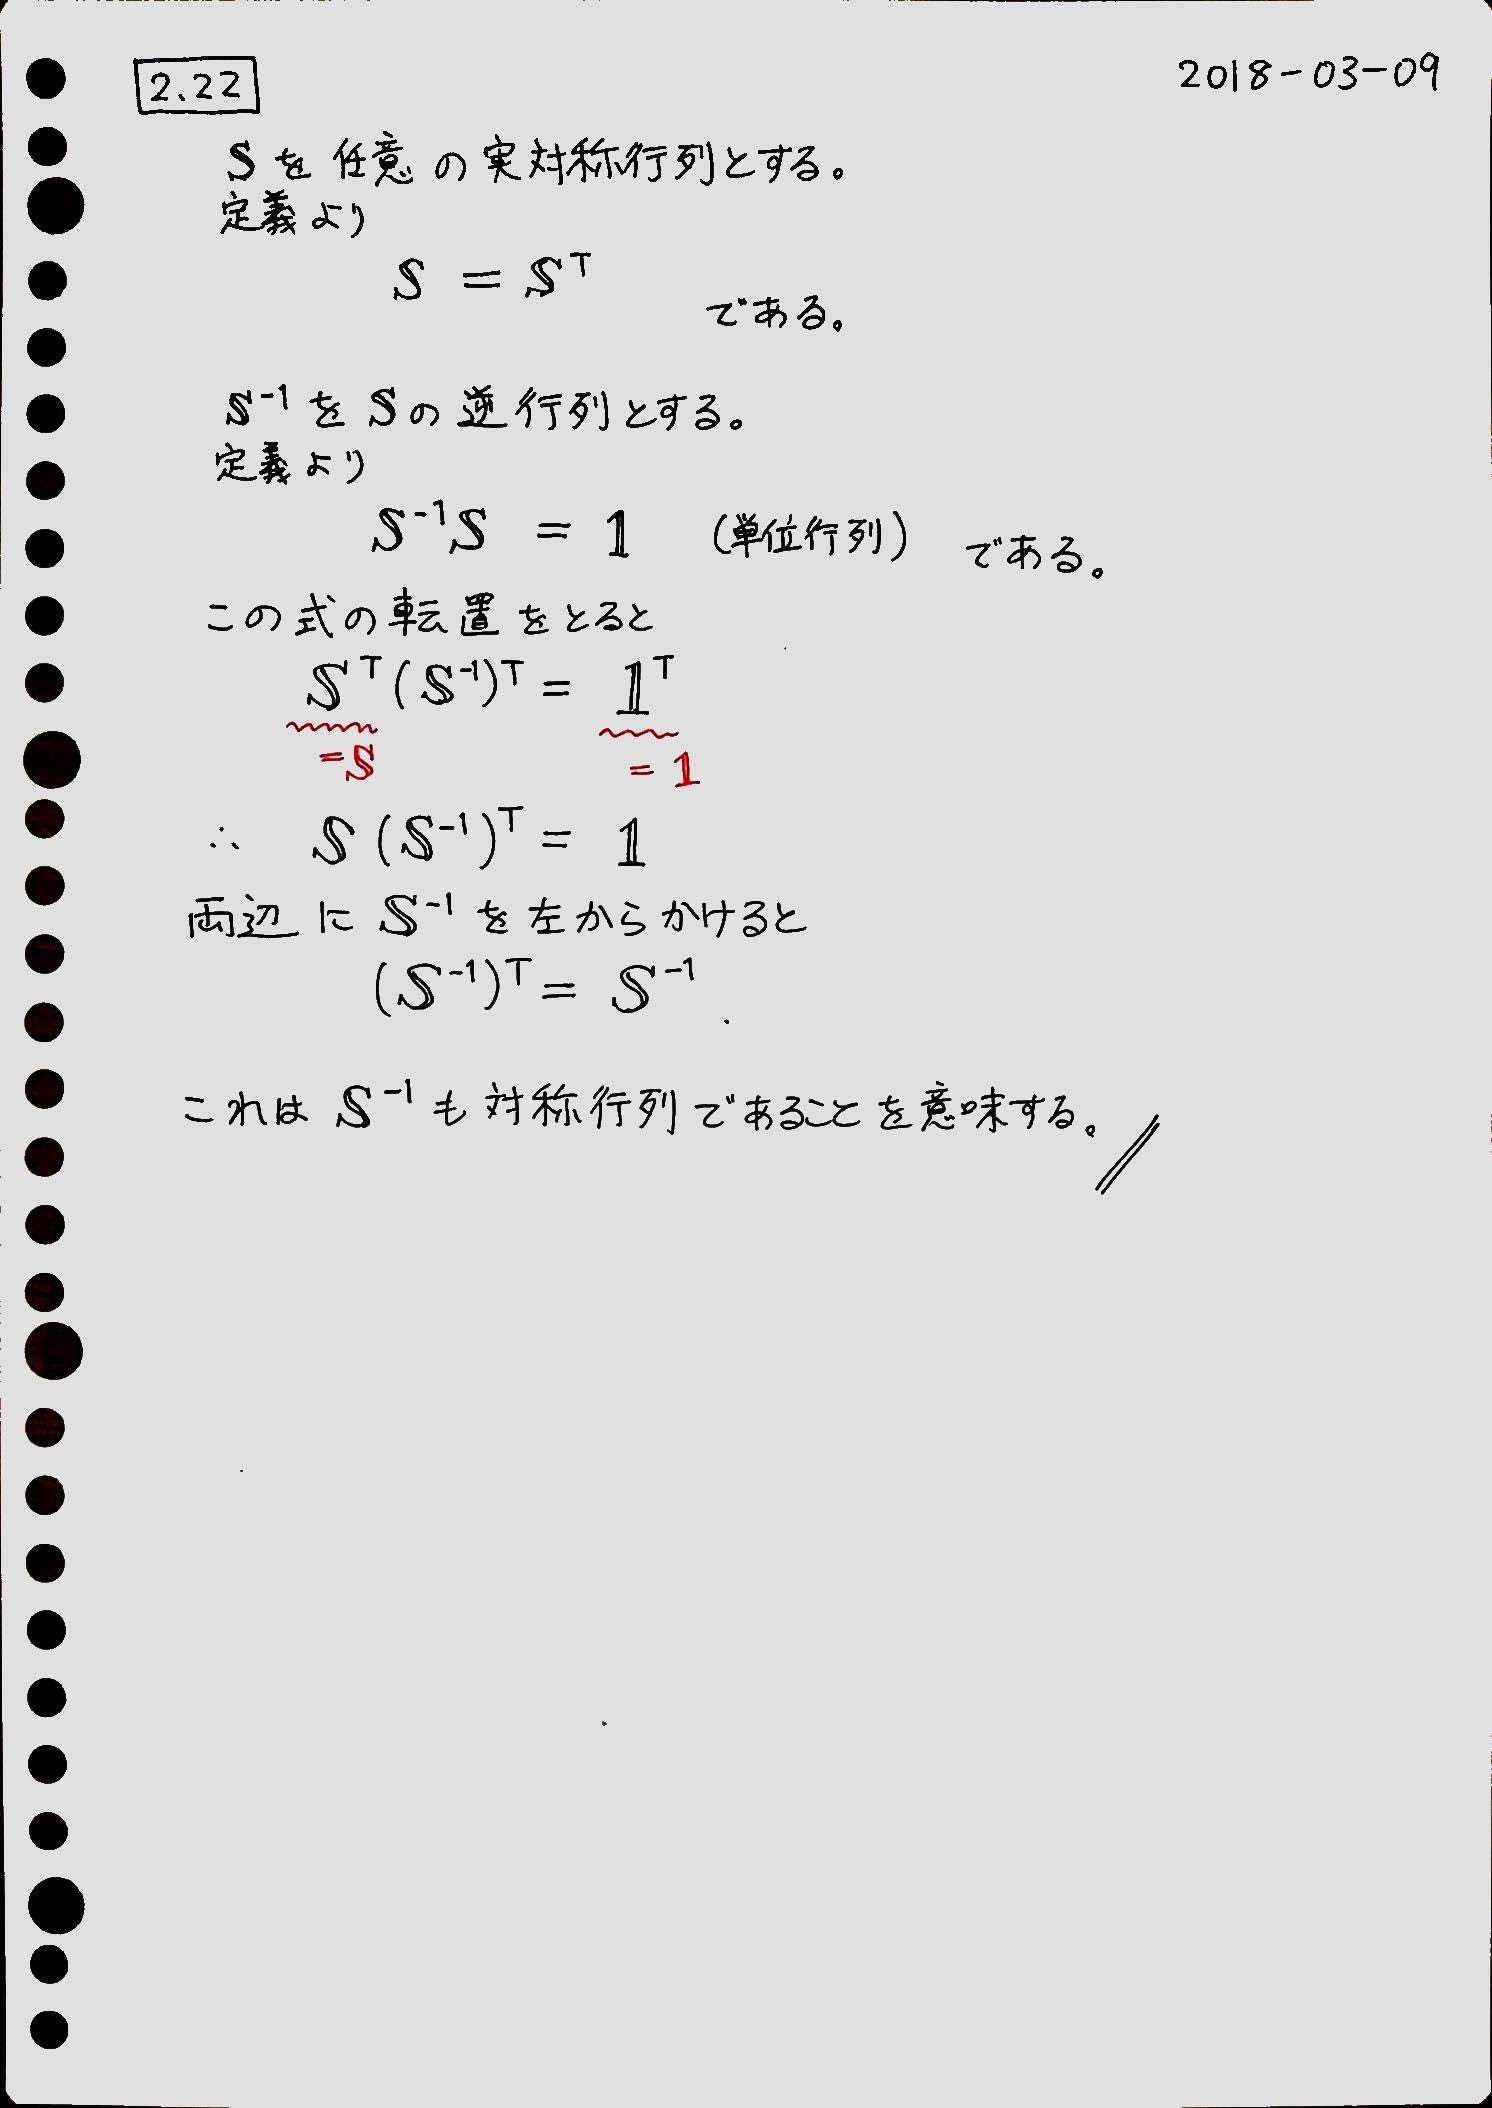 2.22 2018-03-09
𝕊を任意の実対称行列とする。
定義より
𝕊 = 𝕊ᵀ
である。
𝕊⁻¹を𝕊の逆行列とする。
定義より
𝕊⁻¹𝕊 = 𝟙 (単位行列) である。
この式の転置をとると
𝕊ᵀ(𝕊⁻¹)ᵀ = 𝟙ᵀ
=𝕊 = 𝟙
∴ 𝕊(𝕊⁻¹)ᵀ = 𝟙
両辺に𝕊⁻¹を左からかけると
(𝕊⁻¹)ᵀ = 𝕊⁻¹.
これは𝕊⁻¹も対称行列であることを意味する。//